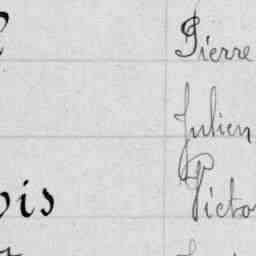 Pierre
Julien
ois Victo